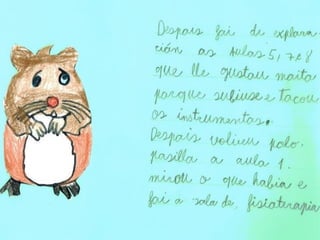 Despois foi de explora-
ción as aulas 5, 7 e 8
que lle gustou moito
porque subiuse e tocou
os instrumentos.
Despois volveu polo
pasillo a aula 1.
mirou o que habia e
foi a sala de fisioterapia